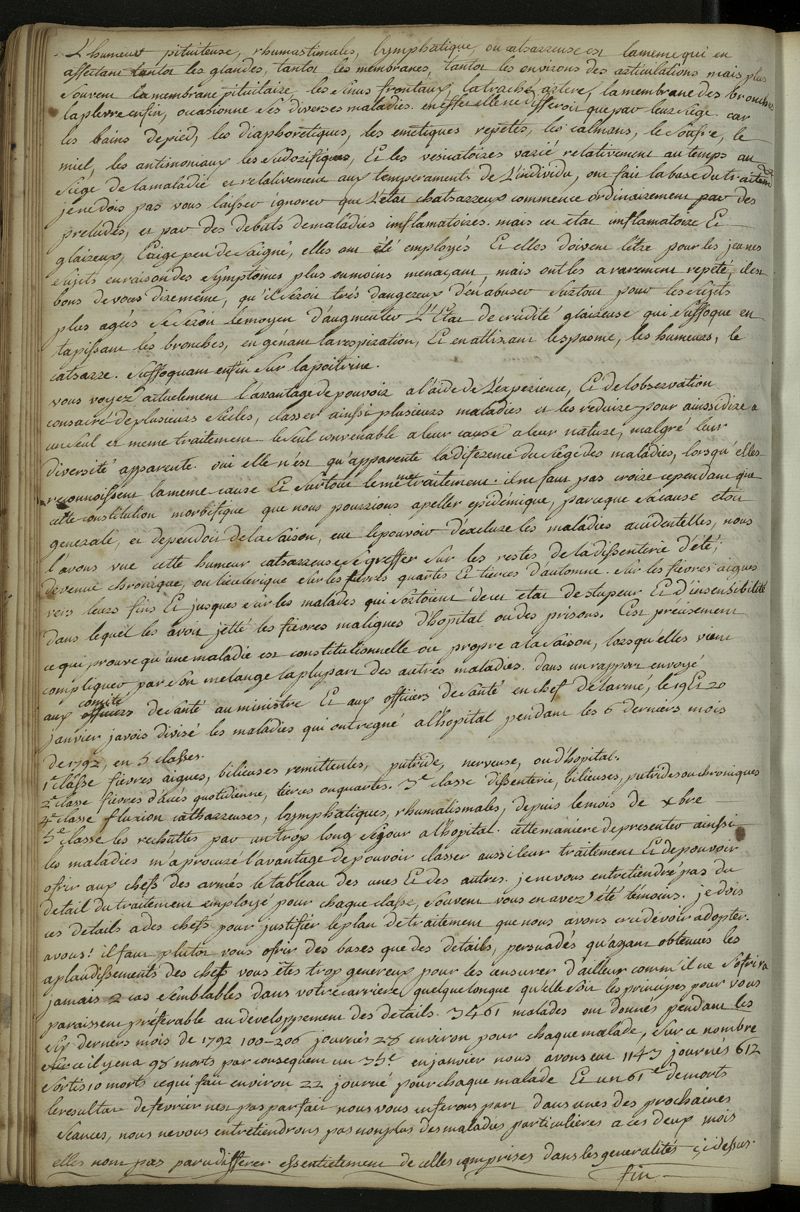 L'humeur pituiteuse, rhumastimales, lymphatique, ou catarreuse est la meme qui en
affectant tantot les glandes, tantot les membranes, tantot les environs des articulations mais plus
souvent la membrane pituitaire, les sinus frontaux, la trachée artere, la membrane des bronches
la plevre enfin, ocasionne ses diverses maladies. en effet elle ne differoit que par leur siege. car
les bains de pied, les diaphoretiques, les emetiques repetés, les calmans, le soufre, le
miel, les antimoniaux les sudorifiques, Et les vesicatoires varié relativement au temps au
siége de la maladie et relativement aux temperaments de L'individu, ont fait la base du traitement
je ne dois pas vous laisser ignorer que L'etat chatarreux commence ordinairement par des
preludes, et par des debuts de maladies imflamatoires. mais cet etat inflamatoire Et
glaireux, Exige peu de saigné, elles ont été employés Et elles doivent l'etre pour les jeunes
sujets en raison des symptomes plus ou moins menaçant, mais ont les a rarement repeté, il est
bons de vous dire meme, qu'il seroit très dangereux d'en abuser surtout pour les sujets
plus agés se seroit le moyen d'augmenter L'Etat de crudité glaireuse qui suffoque en
tapissant les bronches, en génant la respiration, Et en attirant le spasme, les humeurs, le
catarre. suffoquant enfin sur la poitrine.
vous voyez actuelement l'avantage de pouvoir a l'aide de L'experience, Et de l'observation
consacré de plusieurs siecles, classer ainsi plusieurs maladies et les reduire pour ainssi dire a
un seul et meme traitement le seul convenable a leur cause a leur nature, malgré leur
diversité apparente. oui elle n'est qu'apparente la diference du siége des maladies, lorsqu'elles
reconnoissent la meme cause Et surtout le meme traitement. il ne faut pas croire cependant que
cette constitution morbifique que nous pourrions apeller epidémique, parceque sa cause etoit
generale, et dependoit de la saison, eut le pouvoir d'exclure les maladies accidentelles, nous
l'avons vue cette humeur catarreuse se greffer sur les restes de la dissenterie d'été,
devenue chronique, ou sur les fievres quartes Et tierces d'automne. sur les fievres aigues
vers leurs fins Et jusques sur les malades qui sortoient de cet etat de stupeur Et d'insensibilité
dans lequel les avoit jetté les fievres malignes d'hopital ou des prisons. C'est precisement
ce qui prouve qu'une maladie est constitutionnelle ou propre a la saison, lorsqu'elles vient
compliquer par son melange la plupart des autres maladies. dans un rapport envoyé
aux comité de santé au ministre Et aux officiers de santé en chef de l'armé, le 19 Et 20
janvier j'avois divisé les maladies qui ont regné a l'hopital pendant les 6 derniers mois
de 1792, en 5 classes.
1e classe fievres aigues, bilieuses remittentes, putride, nerveuse, ou d'hopital.
2e classe fievres d'accés quotidienne, tierces ou quartes. 3e classe dissenterie, bilieuses, putrides ou chroniques
4e classe fluxion catharreuses, lymphatiques, rhumatismales, depuis le mois de xbre
5e classe les rechuttes par un trop long séjour a l'hopital. cette maniere de presenter ainssi
les maladies m'a procuré l'avantage de pouvoir classer aussi leur traitement Et de pouvoir
ofrir aux chefs des armés le tableau des unes Et des autres. je ne vous entretiendré pas du
detail du traitement employé pour chaque classe, souvent vous en avez été témoins. je dois
ces details a des chefs pour justifier le plan de traitement que nous avons cru dévoir adopter.
a vous! il faut plutot vous ofrir des bases que des details, persuadés qu'ayant obtenues les
aplaudissements des chefs vous êtes trop genereux pour les censurer d'ailleur comm'il ne s'ofrira
jamais 2 cas semblables dans votre carriere quelque longue qu'elle soit les principes pour vous
paraissent préferable au developpement des details. 3461 malades ont donnés pendant les
six derniers mois de 1792 100-206 journés 28 environ pour chaque malade, sur ce nombre
il y en a 98 morts par consequent un 35e. en janvier nous avons eut 1143 journés 612
sortis 10 morts ce qui fait environ 22 journé pour chaque malade Et un 61e de morts
le resultat de fevrier n'est pas parfait nous vous en ferons part dans une des prochaines
séances, nous ne vous entretiendrons pas non plus des maladies particulieres a ces deux mois
elles n'ont pas paru differer essentielement de celles comprises dans les generalités cidessus.
fin